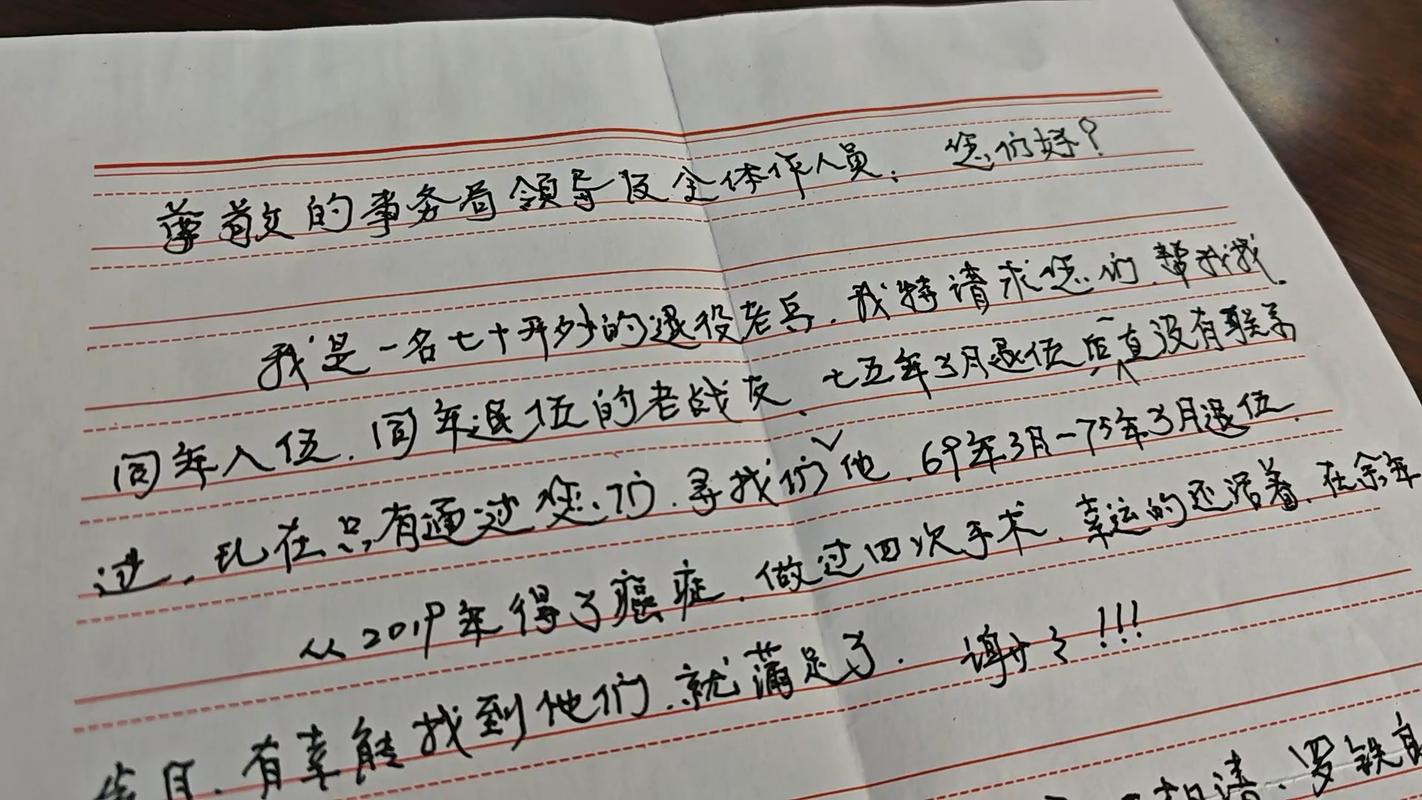 尊敬的事务局领导及全体作人员：您们好？
我是一名七十开外的退役老兵，我特请求您们，帮我找
同年入伍，同年退伍的老战友，七五年3月退伍后一直没有联系
过，现在只有通过您们，寻找们他，69年3月-75年3月退伍，
从2019年得了癌症，做过四次手术，幸运的还活着，在余年
岁月，有幸能找到他们，就满足了．谢谢！！！
罗铁